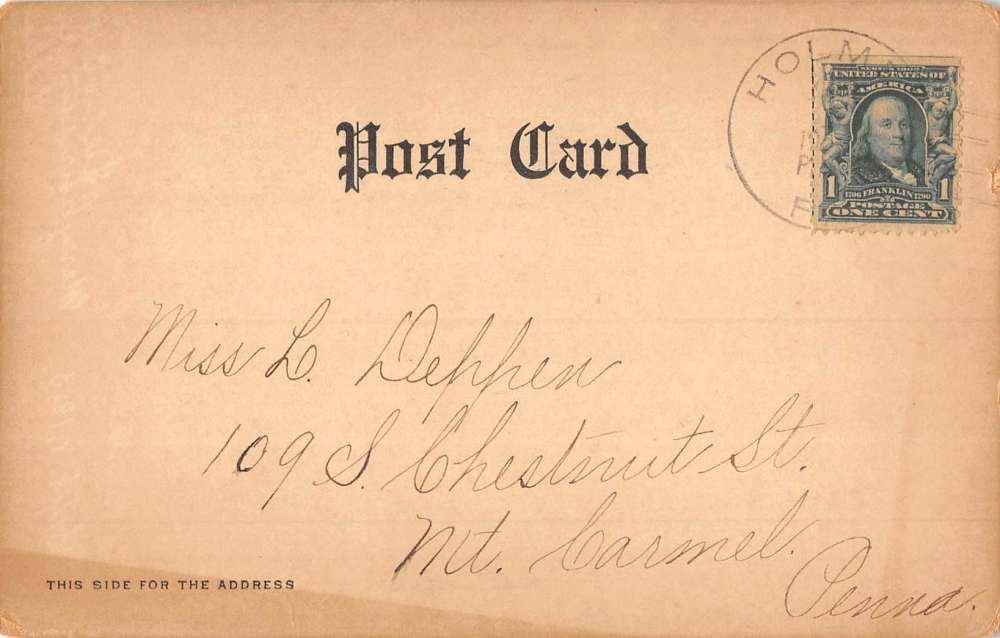 HOLM
Post Card
SERIES 1902
UNITED STATES OF
AMERICA
1 1706 FRANKLIN 1790 1
POSTAGE
ONE CENT
Miss L. Deppen
109 S. Chestnut St.
Mt. Carmel.
Penna.
THIS SIDE FOR THE ADDRESS